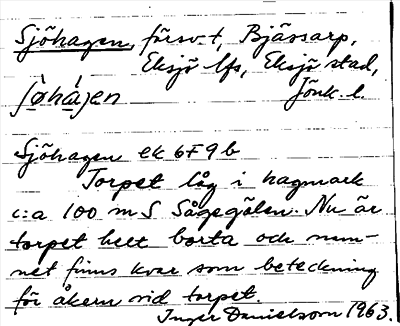 Sjöhagen, försv. t, Bjässarp,
Eksjö lfs, Eksjö stad,
Jönk. l.
Sjöhagen ek 6F9b
Torpet låg i hagmark
c:a 100 m S Sågegölen. Nu är
torpet helt borta och nam-
net finns kvar som beteckning
för åkern vid torpet.
Inger Danielsson 1963.